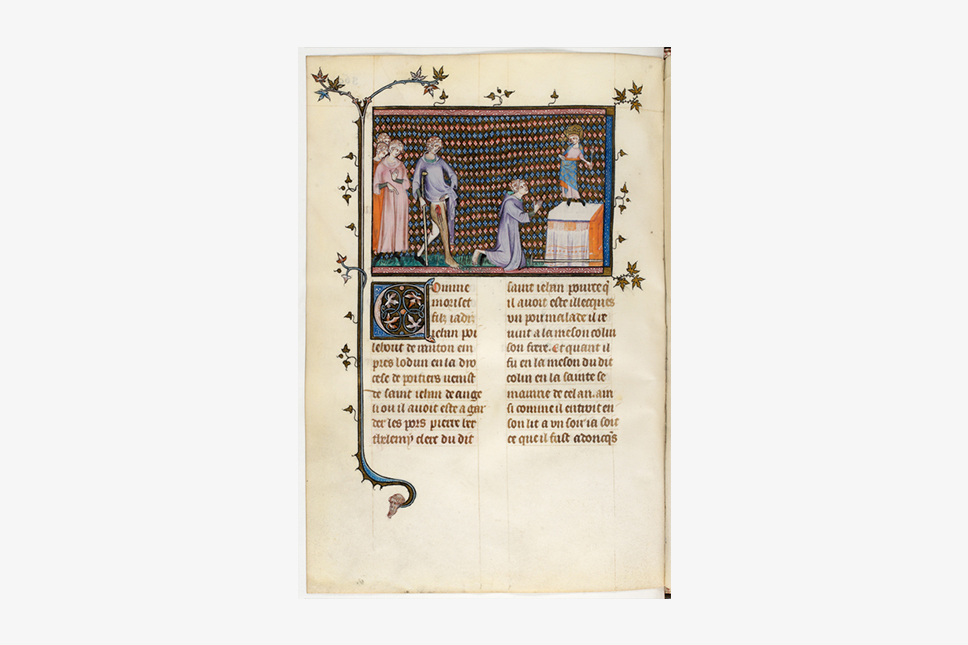 Comme
moriset
filz iadis
iehan poi
lebout de ranton em
pres lodun en la dyo
cese de poitiers venist
de saint iehan de ange
li ou il auoit este a gar
der les pors pierre ber
thelemy clerc du dit
saint iehan pource q̄
il auoit este illecques
vn pou malade il re
uint a la meson colin
son frere. Et quant il
fu en la meson du dit
colin en la sainte se
mainne de cel an. ain
si comme il entroit en
son lit a vn soir ia soit
ce que il fust adoncq̄s